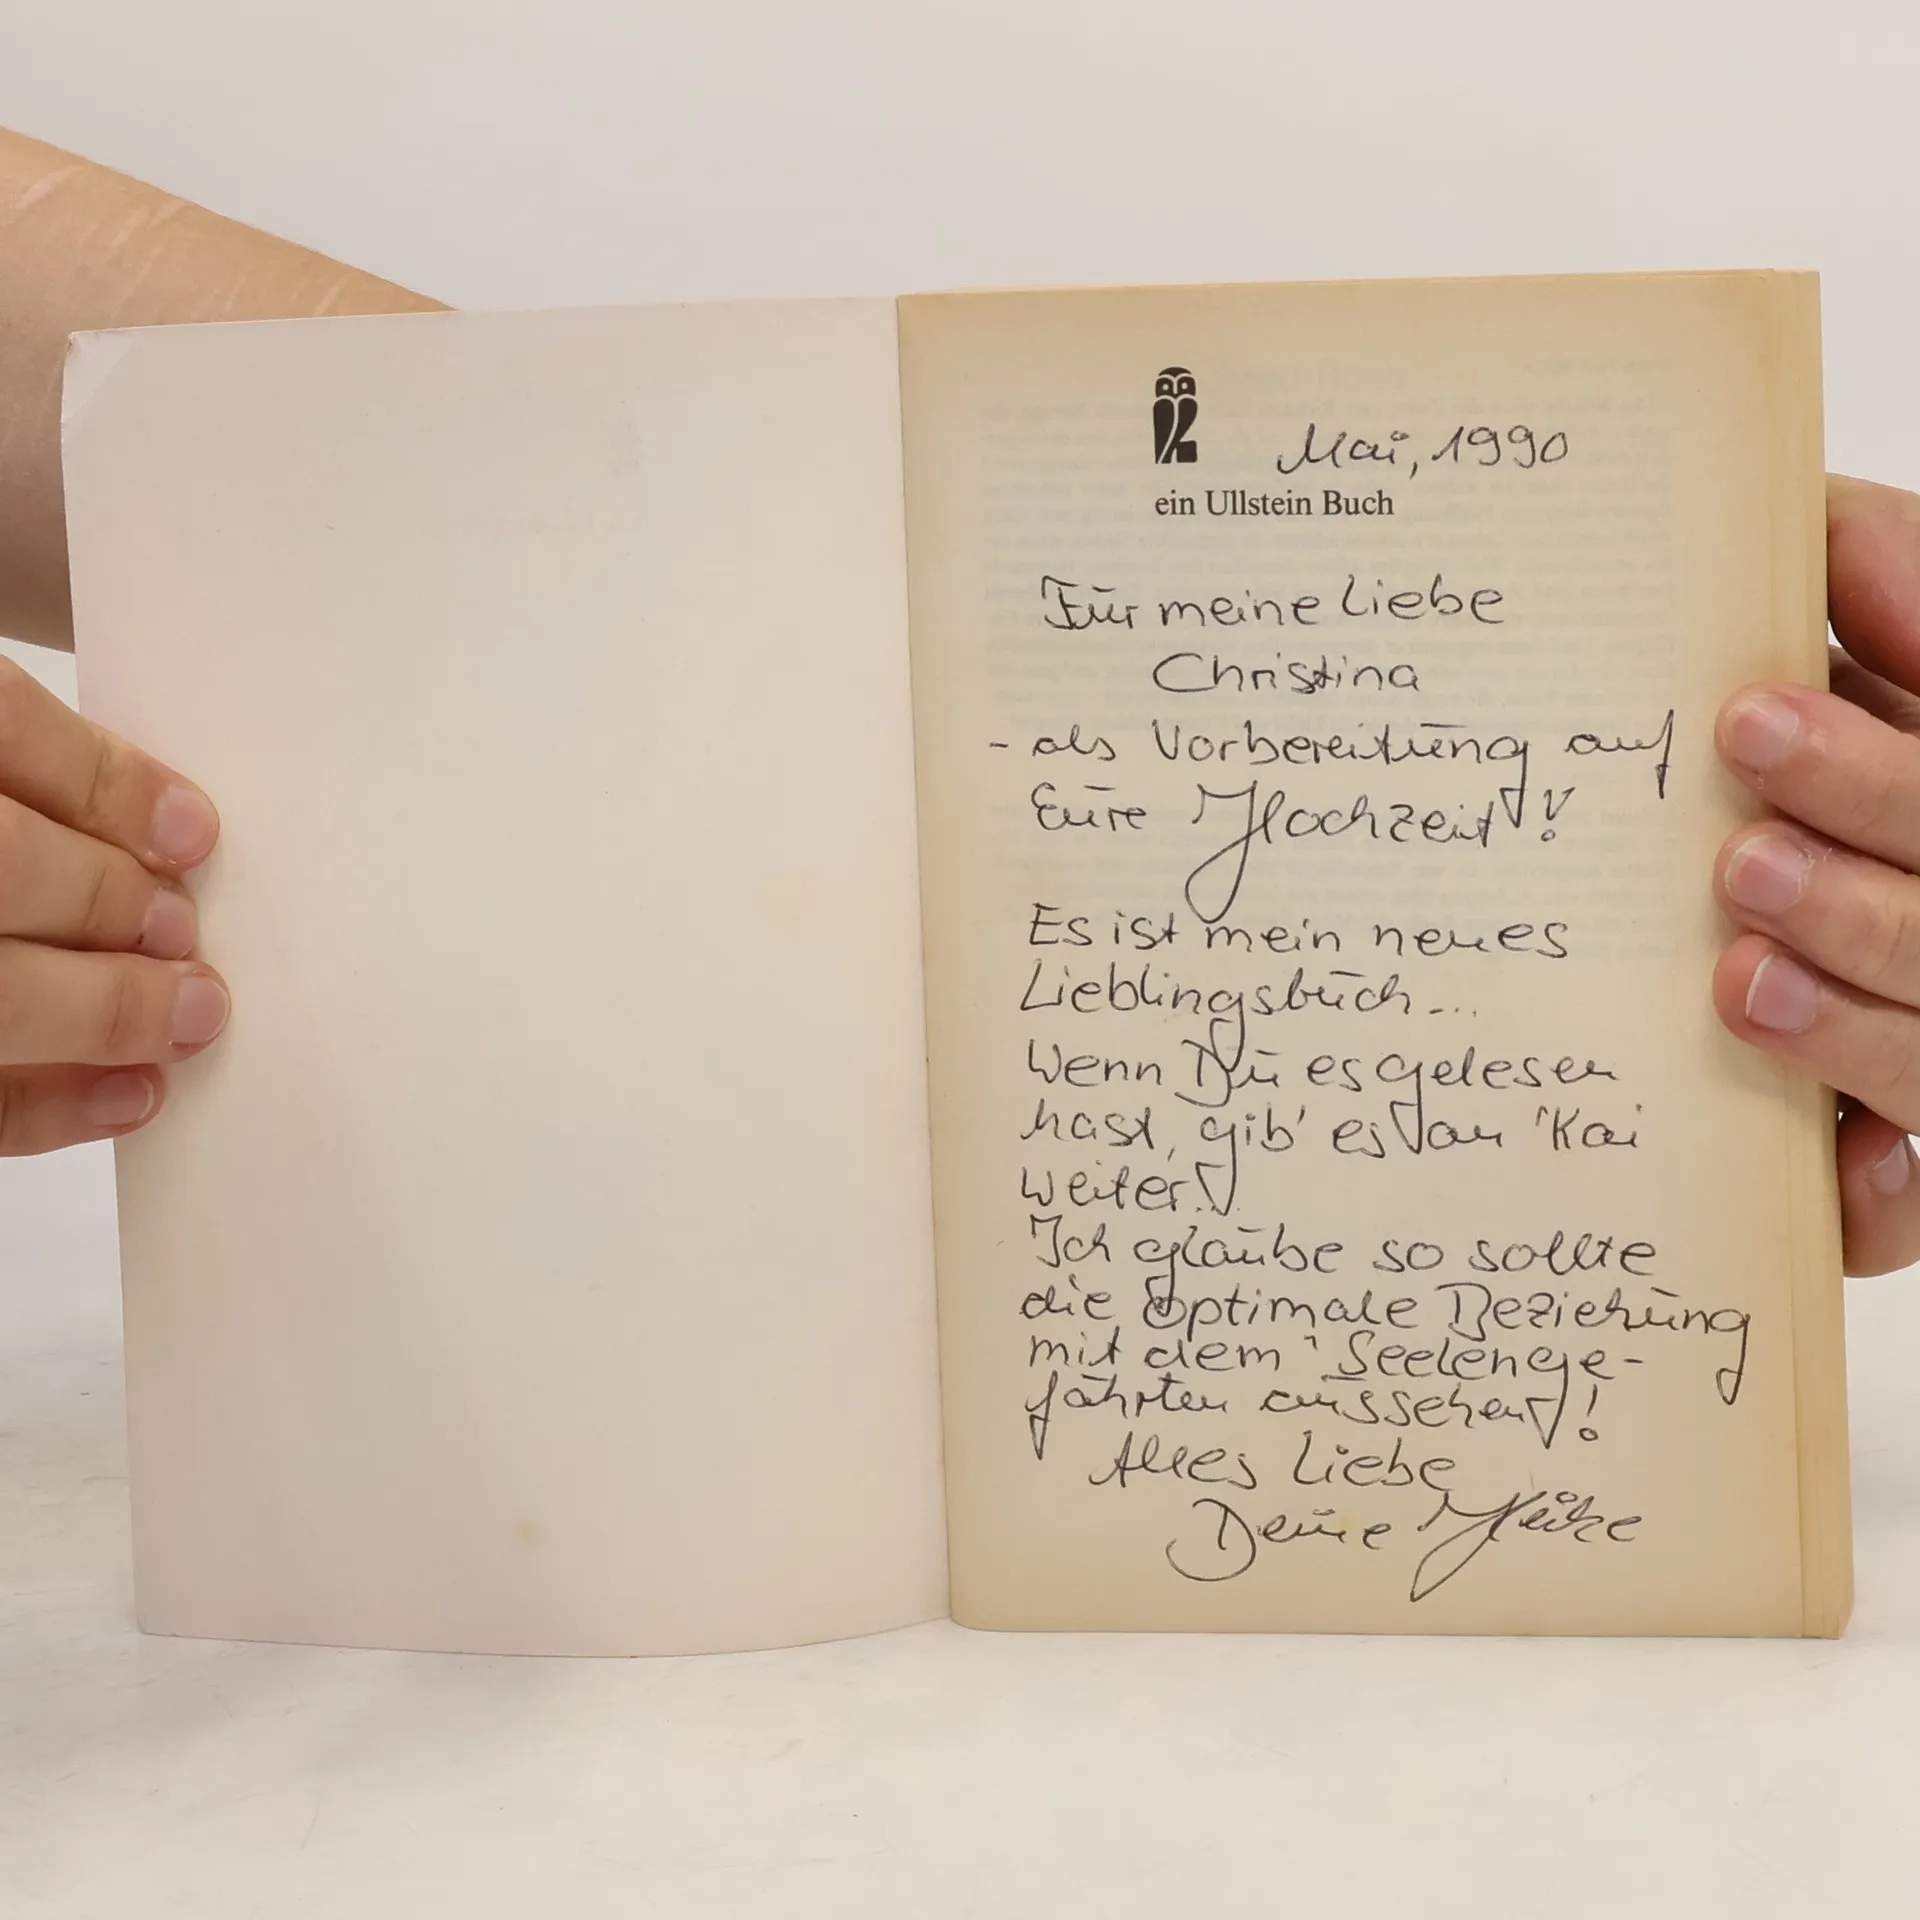 Mai, 1990
ein Ullstein Buch
Für meine Liebe
Christina
- als Vorbereitung auf
Eure Hochzeit!
Es ist mein neues
Lieblingsbuch...
Wenn Du es gelesen
hast, gib' es an Kai
weiter!
Ich glaube so sollte
die optimale Beziehung
mit dem Seelenge-
fährten aussehen!
Alles Liebe
Deine Heike